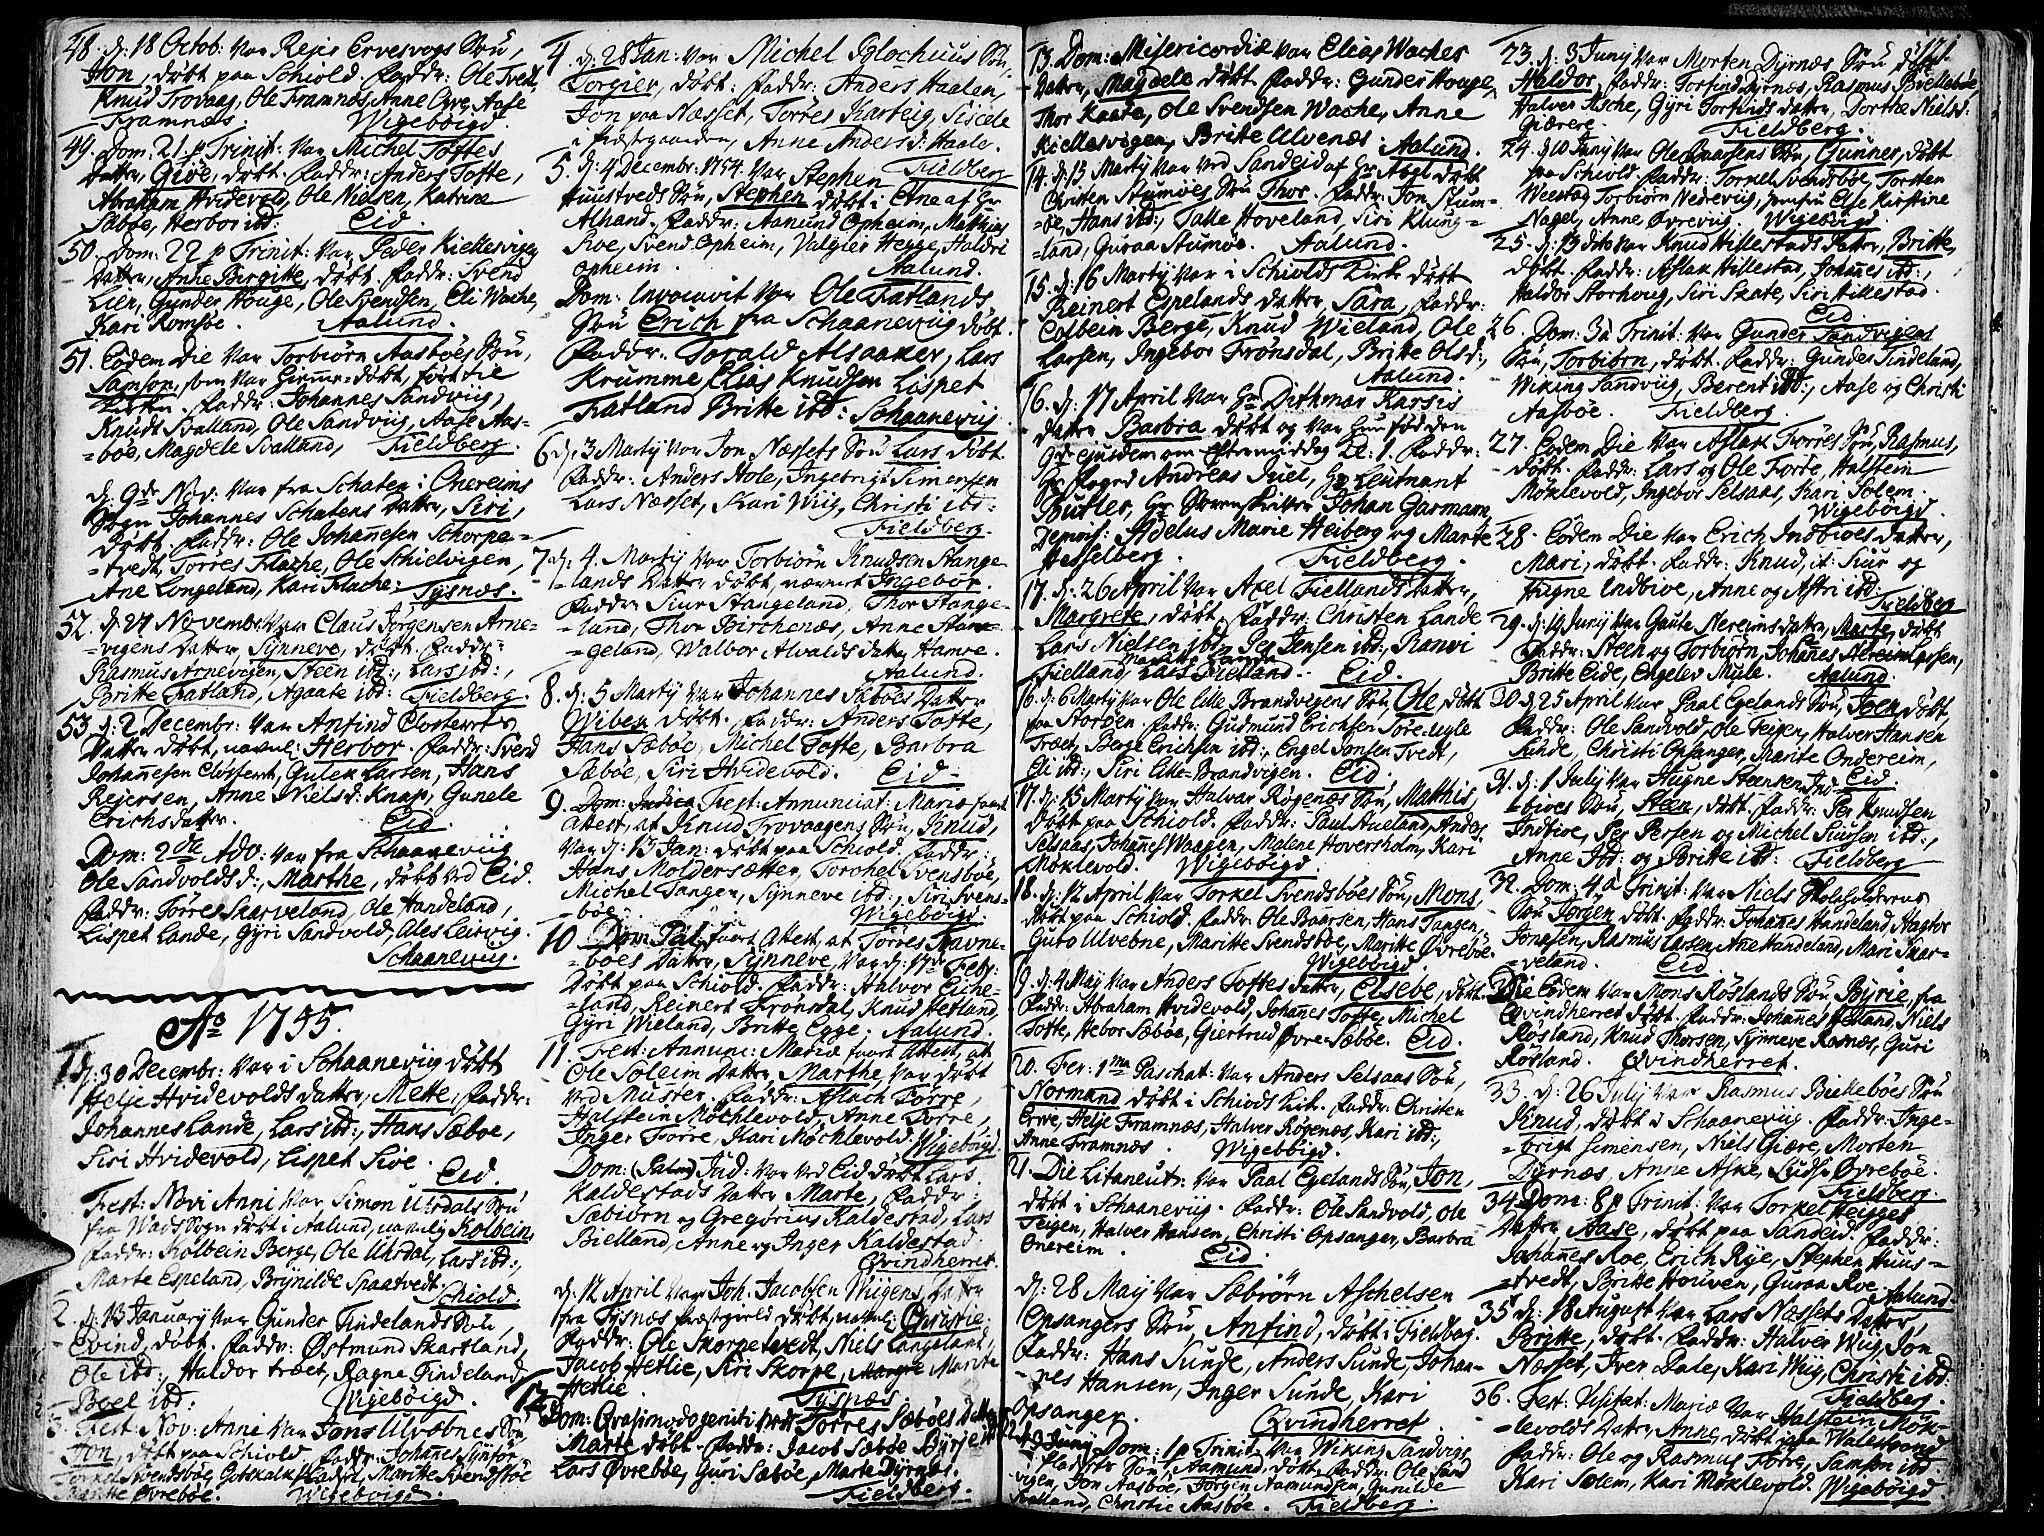 48. d: 18 Octob: var Rejer Ervesvogs Søn,
Jon, døbt paa Schiold. Faddr: Ole Tvedt,
Knud Trovaag, Ole Framnæs, Anne Aase
Framnæs. Wigebøigd.
49. Dom: 21. p Trinit: var Michel Toftes
Datter, døbt. Faddr: Anders Tofte,
Abraham Hvidevold, Ole Nielsen, Katrine
Sæbøe, Herbor ibd: Eid.
50. Dom: 22 p Trinit: var Peder Kiellesvigs
Datter, Anne Bergitte, døbt. Faddr: Svend
Lier, Gunder Houge, Ole Svendsen, Eli Wache,
Kari Romsøe. Aalund.
51. Eodem Die var Torbiørn Aasbøes Søn,
Samson, som var Hiemme-døbt, ført til
Kirken. Faddr: Johannes Sandviig,
Knudt Svalland, Ole Sandviig, Aase Aas-
=bøe, Magdele Svalland, Fieldberg.
d. 9de Nov: var fra Schaten i Onereims
Sogn Johannes Schatens Datter, Siri,
døbt. Faddr: Ole Johannesen Schorpe-
=tvedt, Torres Flache, Ole Schielvigen,
Ane Longeland, Kari Flache: Tysnæs.
52. d: 24 Novembr: var Claus Jørgensen Arne-
=vigens Datter, Synneve, døbt. Faddr:
Rasmus Arnevigen, Steen ibd:, Lars ibd:,
Britte Fatland, Agaate ibd: Fieldberg.
53. d: 2 Decembr: var Anfind Closterets
Datter døbt, navnl: Herbor. Faddr: Svend
Johannesen Closteret, Gulek Larsen, Hans
Rejersen, Anne Nielsd: Knap, Gunele
Erichsdatter. Eid
Dom: 2de Adv: var fra Schaaneviig
Ole Sandvolds d:, Marthe, døbt ved Eid.
Faddr: Tørres Skarveland, Ole Handeland,
Lispet Lande, Gyri Sandvold, Ales Leirvig.
Schaaneviig.
Ao 1755.
1. d: 30 Decembr: var i Schaaneviig døbt
Helje Hvidevolds datter, Mette, Faddr:
Johannes Lande, Lars ibd:, Hans Sæboe,
Siri Hvidevold, Lispet Siøe. Eid.
Fest: Novi Anni var Simon Uhrdals Søn
fra Wads Sogn døbt i Aalund, navnlig Kolbein,
Faddr: Kolbein Berge, Ole Uhrdal, Lars ibd:,
Marte Espeland, Brynilde Spaatvedt.
Schiold.
2. d: 13 January var Gunder Tindelands Søn,
Evind, døbt. Faddr: Østmund Skartland,
Ole ibd:, Haldor træet, Ragne Tindeland,
Boel ibd: Wigebøigd.
3. Fest: Nov: Anni var Jons Ulvebnes Søn
Jon, døbt paa Schiold. Faddr: Johannes
Torkel Svendsbøe, Gotskalk, Maritte Svendsbøe
Øvrebøe. Wigebøigd.
4. d: 28 Jan: var Michel Iglochuus Søn,
Torgier, døbt: Faddr: Anders Haalen,
Jon paa Næsset, Torres Karteig, Siscele
i Præstgaarden, Anne Anders d: Haale.
Fieldberg
5. d: 4 Decembr: 1754. var Stephen
Huustveds Søn, Stephen døbt i Etne af Hr
Alhand. Faddr: Aanund Opheim, Mathias
Roe, Svend Opheim, Valgier Hegge, Haldri
Opheim. Aalund.
Dom: Invocavit var Ole Fatlands
Søn Erich fra Schaaneviig døbt.
Faddr: Torald Alsaaker, Lars
Krumme, Elias Knudsen Lispet
Fatland Britte ibd: Schaaneviig
6 d: 3 Marty var Jon Næssets Søn Lars døbt.
Faddr: Anders Hole, Ingebrigt Simensen
Lars Næsset, Kari Wiig, Christi ibd:
Fieldberg.
7. d: 4. Marty var Torbiørn Knudsen Stange-
lands Datter døbt, nævnet Ingebor.
Faddr: Siur Stangeland, Thor Stange-
=land, Thor Birchenæs, Anne Stan-
=geland, Walbor Alvalds datr Hamre.
Aalund.
8. d: 5 Marty var Johannes Sæbøes Datter
Wiben døbt. Faddr: Anders Tofte,
Hans Sæbøe, Michel Tofte, Barbra
Sæbøe, Siri Hvidevold. Eid.
9. Dom: Fest: Annunciat: Mariæ faaet
Attest, at Knud Trovaagens Søn, Knud,
var d: 13 Jan: døbt paa Schiold. Faddr:
Hans Moldersætter, Torchel Svensbøe,
Michel Tangen, Synneve ibd:, Siri Svens-
bøe. Wigebøigd.
10. Dom: Pal: faaet Attest, at Tørres Ravne-
=bøes Datter, Synneve, var d: 17de Febr:
døbt paa Schiold. Faddr: Halvor Eiche-
=land, Reinert Frønsdal, Knud Hetland,
Gyri Wieland, Britte Egge. Aalund.
11. Fest: Annunc: Mariæ faaet Attest, at
Ole Soleim Datter, Marthe, var døbt
ved Muster. Faddr: Aslach Torre,
Halstein Møchlevold, Anne Torre,
Inger Torre, Kari Møchlevold. Wigebøigd.
Dom: Jud: var ved Eid døbt Lars
Kaldestads Datter, Marte, Faddr:
Sæbiørn og Gregorius Kaldestad, Lars
Bielland, Anne og Inger Kaldestad.
Qvindherret.
d: 12 April var Joh: Jacobsen Wiigens Datter
fra Tysnæs præstgield døbt, navnl: Christie.
Faddr: Ole Skorpetvedt, Niels Langeland,
Jacob Hetlie, Siri Skorpe, Maritte
Hetlie. Tysnæs
12. Dom: Qvasimodogeniti var Torres Sæbøes Datter
Marte døbt. Faddr: Jacob Sæbøe
Lars Øvrebøe, Guri Sæbøe, Marte Dyrnæs.
Fieldberg.
13. Dom: Misericordiæ var Elias Waches
Datter, Magdele døbt. Faddr: Gunder Houge,
Thor Kaate, Ole Svendsen Wache, Anne
Kiellesvigen, Britte Ulvenæs. Aalund.
14. d: 13 Marty var ved Sandeid af Hr Abel døbt
Christen Stumøes Søn Thor. Faddr: Jon Stum-
=øe, Hans ibd:, Salle Hoveland, Siri Klung-
=land, Guraa Stumøe. Aalund.
15. d: 16 Marty var i Schiolds Kirke døbt
Reinert Espelands datter Sara, Faddr:
Colbein Berge, Knud Wieland, Ole
Larsen, Ingebor Frønsdal, Britte Olsd:,
Aalund.
16. d: 17 April var Hr Dithmar Kassis
datter Barbra døbt og var hun født den
9de ejusdem om Eftermiddag Kl: 1. Faddr:
Hr Foged Andreas Juel, Hr Leutnant
Butler, Hr Sorenskriver Johan Garmann,
Demois: Adelus Marie Heiberg og Marte
Hasselberg. Fieldberg.
17. d: 26 April var Axel Fiellands Datter,
Margrete, døbt. Faddr: Christen Lande
Lars Nielsen ibd:, Per Jensen ibd:, Ranvi
Fielland, Lars Fielland. Eid.
16. d: 6 Marty var Ole Lille Brandvigens Søn, Ole, døbt
paa Storøen. Faddr: Gudmund Erichsen Tore-
Træet, Berge Erichsen ibd:, Engel Jonsen Tvedt,
Eli ibd:, Siri Lille-Brandvigen. Eid.
17. d: 15 Marty var Halvar Røgenæs Søn, Matthis,
døbt paa Schiold. Faddr: Paul Aueland, Anders
Selsaas, Johannes Waagen, Malene Hoversholm, Kari
Møklevold. Wigebøigd.
18. d: 12 April var Torkel Svendsbøes Søn, Mons,
døbt paa Schiold. Faddr: Ole Baarsen, Hans Tangen,
Guro Ulvebne, Maritte Svendsbøe, Maritte Øvrebøe.
Wigebøigd.
19. d: 4 May var Anders Toftes datter, Elsebe, døbt.
Faddr: Abraham Hvidevold, Johannes Tofte, Michel
Tofte, Hebor Sæbøe, Giertrud Øvre-Sæbøe. Eid.
20. Fer: 1ma Paschat: var Anders Selsaas Søn,
Normand døbt i Schiods Kirk. Faddr: Christen
Erve, Helje Framnæs, Halver Røgenæs, Kari ibd:,
Anne Framnæs. Wigebøigd.
21. Die Litaneut: var Paal Egelands Søn, Jon,
døbt i Schaaneviig. Faddr: Ole Sandvold, Ole
Teigen, Halver Hansen, Christi Opsanger, Barbra
Onereim. Eid
d: 28 May var Sæbiørn Aschelsen
Opsangers Søn, Anfind, døbt i Fieldbg.
Faddr: Hans Sunde, Anders Sunde, Johan-
=nes Hansen, Inger Sunde, Kari
Opsanger. Qvindherret
22. d: 3 Juny Dom: 1 p Trinit: var Wiking Sandvigs
Søn, Aamund, døbt. Faddr: Ole Sand
vigen, Jon Aasbøe, Jorgen Aamundsen, Gunilde
Svalland, Christie Aasbøe. Fieldberg.
121.
23. d: 3 Juny var Morten Dyrnæs Søn døbt
Haldor, Faddr: Torfind Dyrnæs, Rasmus Biellebøe,
Halver Asche, Gyri Torfinds datter, Dorthe Niels d:
Giærere. Fieldberg.
24. d: 10 Juny var Ole Baarsens Søn, Gunner, døbt
paa Schiold. Faddr: Torkel Svendsbøe, Torsten
Weestad, Torbiørn Nedreviig, Jomfru Else Kirstine
Nagel, Anne Øvreviig. Wigebøigd
25. d: 13 dito var Knud Hillestads datter, Britte,
døbt. Faddr: Aslak Hillestad, Johannes ibd:,
Haldor Storhoug, Siri Skate, Siri Hillestad.
Eid.
26. Dom: 3 a Trinit: var Gunder Sandvigens
Søn, Torbiørn, døbt. Faddr: Gunder Tindeland,
Wiking Sandviig, Berent ibd:, Aase og Christi
Aasbøe. Fieldberg.
27. Eodem Die var Aslak Torres Søn, Rasmus,
døbt. Faddr: Lars og Ole Torre, Halstein
Møklevold, Ingebor Selsaas, Kari Solem.
Wigebøigd.
28. Eodem Die var Erich Indbioes datter,
Mari, døbt. Faddr: Knud, it: Siur og
Hugne Indbioe, Anne og Astri ibd:
Fieldberg
29. d: 19 Juny var Gaute Nereims datter, Marte, døbt
Faddr: Steen og Torbiørn, Johannes Nereim
Britte Eide, Engelev Mule. Aalund.
30. d: 25 April var Paal Egelands Søn, Joen, døbt,
Faddr: Ole Sandvold, Ole Teigen, Halver Hansen
Sunde, Christi Opsanger, Marite Ondereim,
Eid.
31. d: 1 July var Hugne Steensen Ind-
=bioes Søn, Steen, døbt. Faddr: Per Knudsen
Indbioe, Per Persen og Michel Siursen ibd:,
Anne Ibd: og Britte ibd: Fieldberg
32. Dom: 4 a Trinit: var Niels Skoleholderens
Søn Jorgen døbt. Faddr: Johannes Handeland, Hagtor
Jonæsen, Rasmus Larsen, Ane Handeland, Mari Skar-
=veland. Eid.
Die Eodem var Mons Røslands Søn, Byrie, fra
Qvindherret døbt. Faddr: Johannes Hetland, Niels
Røsland, Knud Thorsen, Synneve Ramnæs, Guri
Røsland. Qvindherret.
33. d: 26 July var Rasmus Biellebøes Søn
Knud, døbt i Schaaneviig. Faddr: Inge-
=brigt Simensen, Niels Giære, Morten
Dyrnæs, Anne Aske, Øvrebøe.
Fieldberg.
34. Dom: 8 p Trinit: var Torkel Heigges
Datter, Aase, døbt paa Sandeid. Faddr:
Johannes Roe, Erich Rye, Stephen Huus-
=tvedt, Britte Houven, Guraa Roe. Aalund.
35. d: 18 August var Lars Næssets Datter,
Britte, døbt. Faddr: Halver Wiig, Jon
Næsset, Iver Dale, Kari Wiig, Christi ibd:
Fieldberg.
36. Fest: Visitat: Mariæ var Halstein Møk-
=levolds Datter, Anne, døbt paa Walestrand
Faddr: Ole og Rasmus Torre, Samson ibd:
Kari Solem, Kari Møklevold. Wigebøigd.